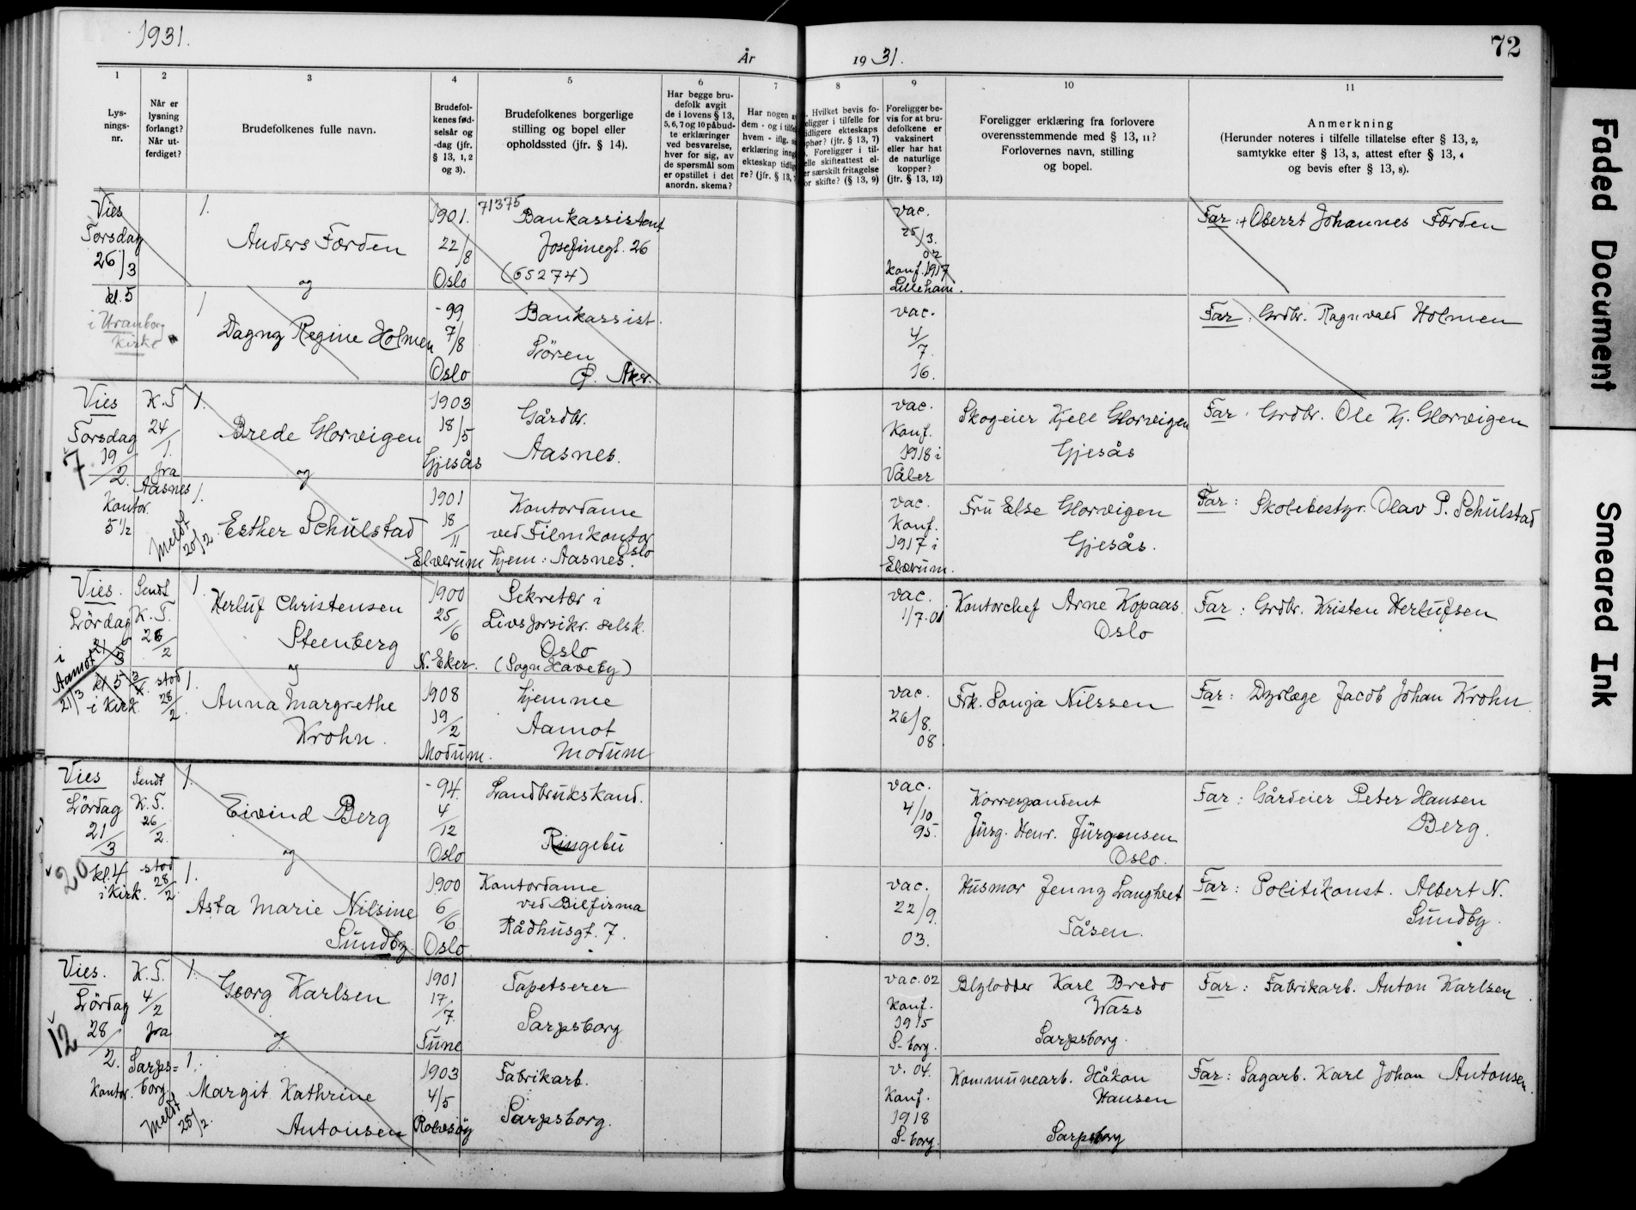 1931.
År
1931.
72
1 2 3 4 5 6 7 8 9 10 11
Lys-
nings-
nr.
Når er
lysning
forlangt?
Når ut-
ferdiget?
Brudefolkenes fulle navn.
Brudefol-
kenes fød-
selsår og
-dag (jfr.
§ 13, 1, 2
og 3).
Brudefolkenes borgerlige
stilling og bopel eller
opholdssted (jfr. § 14).
Har begge bru-
defolk avgit
de i lovens § 13,
5, 6, 7 og 10 påbud-
te erklæringer
ved besvarelse,
hver for sig, av
de spørsmål som
er opstillet i det
anordn. skema?
Har nogen a
dem - og i tilfe
hvem - iflg. s
erklæring inng
ekteskap tidlig
re? (jfr. § 13,
. Hvilket bevis fo-
eligger i tilfelle for
idligere ekteskaps
phør? (jfr. § 13, 7)
. Foreligger i til-
elle skifteattest el-
er særskilt fritagelse
or skifte? (§ 13, 9)
Foreligger be-
vis for at bru-
defolkene er
vaksinert
eller har hat
de naturlige
kopper?
(jfr. § 13, 12)
Foreligger erklæring fra forlovere
overensstemmende med § 13, 11?
Forlovernes navn, stilling
og bopel.
Anmerkning
(Herunder noteres i tilfelle tillatelse efter § 13, 2,
samtykke efter § 13, 3, attest efter § 13, 4
og bevis efter § 13, 8).
Vies
Torsdag
26/3
kl. 5
i Uranborg
Kirke
1.
Anders Færden
og
1901.
22/8
Oslo
71375
Bankassistent
Josefinegt. 26
(65274)
vac.
25/3.
02
Konf. 1917
Lilleham.
Far: + Oberst Johannes Færden
1
Dagny Regine Holmen
- 99
7/8
Oslo
Bankassist.
Løren
Ø. Aker.
vac.
4/7.
16.
Far: Grdbr. Ragnvald Holmen
Vies
Torsdag
19/2.
7
Kontor
5 1/2
K.T
24/1.
fra
Aasnes
Meldt
20/2
1.
Brede Glorvigen
og
1903
18/5
Gjesås
Gårdbr.
Aasnes.
vac.
Konf.
1918 i
Våler
Skogeier Kjell Glorvigen
Gjesås
Far: Grdbr. Ole Kj. Glorvigen
1.
Esther Schulstad
1901
18/11
Elverum
Kontordame
ved Filmkontor
Oslo
hjem: Aasnes.
vac.
Konf.
1917 i
Elverum.
Fru Else Glorvigen
Gjesås.
Far: Skolebestyr. Olav P. Schulstad
Vies.
Lördag
i
Aamot
21/3
kl 5
i Kirk.
Sendt
K.T.
26/2
stod
28/2.
1.
Herluf Christensen
Steenberg
og
1900
25/6
N. Eker.
Sekretær i
Livsforsikr. selsk.
Oslo
(Sogn Haveby)
vac.
1/7.01
Kontorchef Arne Kopaas.
Oslo
Far: Grdbr. Kristen Herlufsen
1.
Anna Margrethe
Krohn.
1908
19/2
Modum.
hjemme
Aamot
Modum
vac.
26/8.
08
Frk. Sonja Nilssen
Far: Dyrlæge Jacob Johan Krohn.
Vies
Lördag
21/3
20
kl. 4
i Kirk.
Sendt
K.T.
26/2.
stod
28/2.
1.
Eivind Berg
og
- 94.
4/12
Oslo
Landbrukskand.
Ringebu
vac.
4/10
95.
Korrespondent
Jürg. Henr. Jürgensen
Oslo.
Far: Gårdeier Peter Hansen
Berg.
1.
Asta Marie Nilsine
Sundby.
1900
6/6
Oslo
Kontordame
ved Bilfirma
Rådhusgt. 7.
vac.
22/9.
03.
Husmor Jenny Langheet
Tåsen.
Far: Politikonst. Albert N.
Sundby.
Vies.
Lördag
28/2.
12
Kontor.
K.T.
4/2
fra
Sarps=
borg
Meldt
25/2.
1.
Georg Karlsen
og
1901
17/7.
Tune
Tapetserer
Sarpsborg
vac. 02
Konf.
1915
S-borg.
Blylodder Karl Bredo
Wass
Sarpsborg.
Far: Fabrikarb. Anton Karlsen.
1.
Margit Kathrine
Antonsen
1903
4/5
Rolvsøy
Fabrikarb.
Sarpsborg.
v. 04.
Konf.
1918
S-borg.
Kommunearb. Håkon
Hansen
Sarpsborg
Far: Sagarb. Karl Johan Antonsen.
Faded Document
Smeared Ink